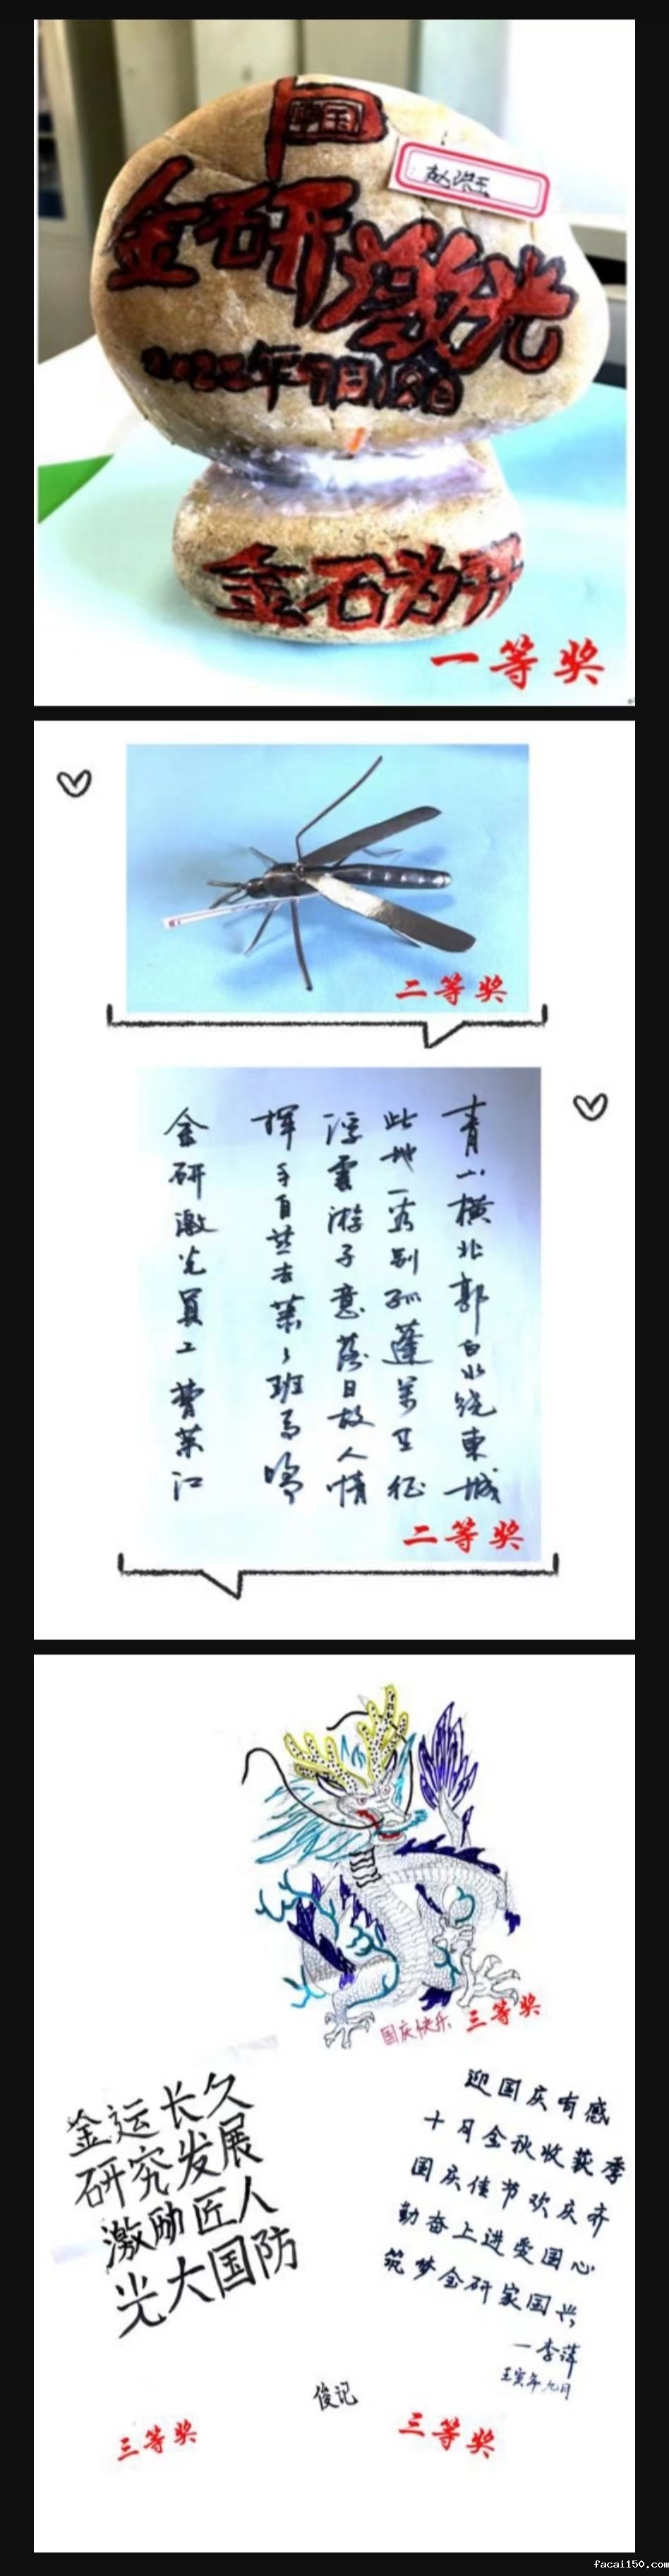 中国
赵洪玉
金石研激光
2022年9月18日
金石为开
一等奖
二等奖
青山横北郭白水绕东城
此地一为别孤蓬万里征
浮云游子意落日故人情
挥手自兹去萧々班马鸣
金研激光员工曹荣江
二等奖
国庆快乐
三等奖
金运长久
研究发展
激励匠人
光大国防
俊记
三等奖
迎国庆有感
十月金秋收获季
国庆佳节欢庆齐
勤奋上进爱国心
筑梦金研家国兴
一李萍
壬寅年九月
三等奖
facai150.com